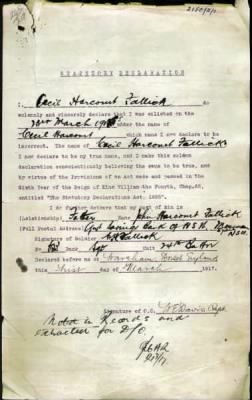 STATUTORY DECLARATION
Cecil Harcourt Fallick do
solemnly and sincerely declare that I was enlisted on the
March under the name of
Cecil Harcourt which name I now declare to be
incorrect. The name of Cecil Harcourt Fallick
I now declare to be my true name, and I make this solemn
declaration conscientiously believing the same to be true, and
by virtue of the Provisions of an Act made and passed in the
Sixth Year of the Reign of King William the Fourth,
entitled "The Statutory Declarations Act, 1835".
I do further declare that my next of kin is
(Relationship) Father Name John Harcourt Fallick
(Full Postal Address) Savings Bank of N.S.W.
N.S.W.
Signature of Soldier C H Fallick
No. Rank Unit 24th Bn
Declared before me at Wareham Dorset England
this 31st day of March 1917.
Signature of C.O.
Noted in Records and
extracted for